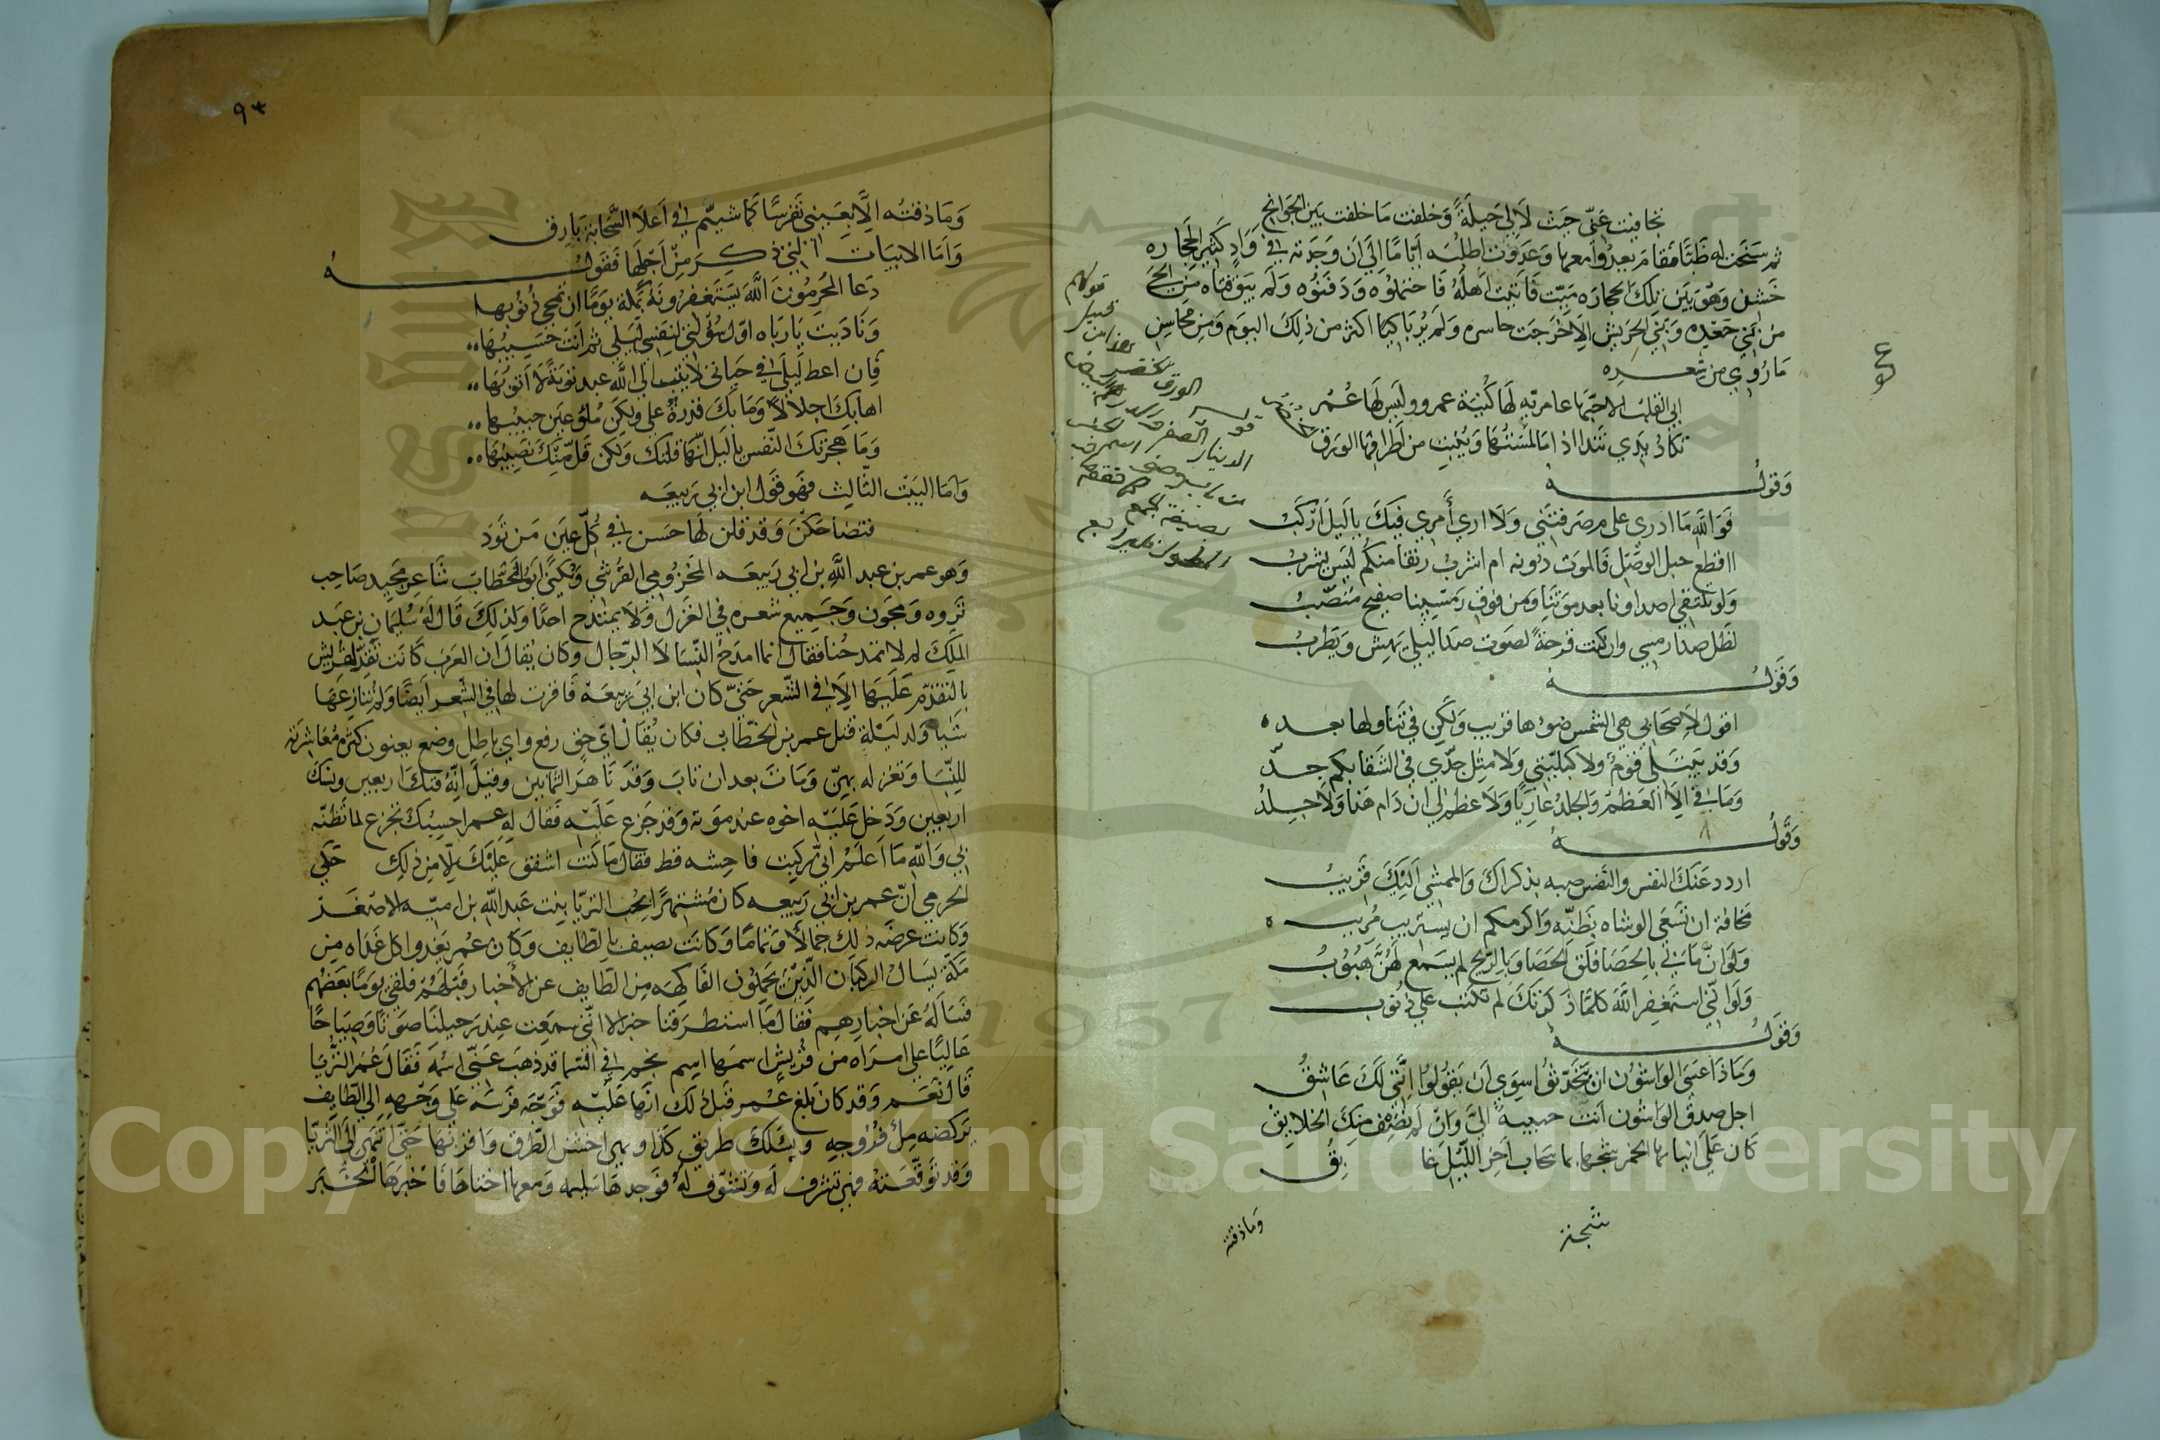 تجافيت عني حيث لا لي حيلة وخلفت ما خلفت بين الجوانح
ثم سنحت له ظبا فقام يعدوا معها وغدوت اطلبه اياما الي ان وجدته في واد كثير الحجاره
خشن وهو بين تلك الحجاره ميت فاتيت اهله فاحتملوه ودفنوه ولم يبق فتاه من الحي
من بني جعده وبني الحريش الا خرجت حاسره ولم ير باكيا اكثر من ذلك اليوم ومن محاسن
ما روي من شعره
ابي القلب الا حبها عامريه لها كنية عمرو وليس لها عمرو
تكاد يدي تندا اذا ما لمستها وينبت من اطرافها الورق
وقوله
فوالله ما ادري علي م صرمتني ولا اري امري فيك يا ليل اركب
ااقطع حبل الوصل فالموت دونه ام اشرب رنقا منكم ليس يشرب
ولو تلتقي اصداونا بعد موتنا ومن فوق رمسينا صفيح منصب
لظل صدا رمسي وان كنت فرحة لصوت صدا ليلي يهش ويطرب
وقوله
اقول لاصحابي هي الشمس ضوءها قريب ولكن في تناولها بعد
وقد يبتلي قوم ولا كبليتي ولا مثل جدي في الشقا بكم جد
وما في الا العظم والجلد عاريا ولا عظم لي ان دام هذا ولا جلد
وقوله
اردد عنك النفس والنفس صبه بذكراك والممشي اليك قريب
مخافة ان تسعي الوشاه بظنه واكرمكم ان يستريب مريب
ولو ان ما بي بالحصا فلق الحصا وبالريح لم يسمع لهن هبوب
ولو انني استغفر الله كلما ذكرتك لم تكتب علي ذنوب
وقوله
وما ذا عسي الواشون ان يتحدثوا سوي ان يقولوا انني لك عاشق
اجل صدق الواشون انت حبيبة الي وان لم تصف منك الخلايق
كان علي انيابها الخمر شجها بما سحاب اخر الليل غابق
وما ذقته
٩٣
وما ذقته الا بعيني تفرسا كما شيم في اعلا السحابة بارق
واما الابيات التي ذكر من اجلها فقوله
دعا المحرمون الله يستغفرونه بمكة يوما ان تمحي ذنوبها
وناديت يا رباه اول سؤلتي لنفسي ليلي ثم انت حسيبها
فان اعط ليلي في حياتي لا يتب الي الله عبد توبة لا اتوبها
اهابك اجلالا وما بك قدرة علي ولكن ملؤ عين حبيبها
وما هجرتك النفس يا ليل انها قلتك ولكن قل منك نصيبها
واما البيت الثالث فهو قول ابن ابي ربيعه
فتضاحكن وقد قلن لها حسن في كل عين من تود
وهو عمر بن عبد الله بن ابي ربيعه المخزومي القرشي ويكني ابو الخطاب شاعر مجيد صاحب
ثروه ومجون وجميع شعره في الغزل ولا يمتدح احدا ولذلك قال له سليمان بن عبد
الملك لم لا تمدحنا فقال انما امدح النسا لا الرجال وكان يقال ان العرب كانت تقر لقريش
بالتقدم عليها الا في الشعر حتي كان ابن ابي ربيعة فاقرت لها في الشعر ايضا ولم تنازعها
شيا ولد ليلة قتل عمر بن الخطاب فكان يقال اي حق رفع واي باطل وضع يعنون كثرة معاشرته
للنسا وتغزله بهن ومات بعد ان تاب وقد ناهز الثمانين وقيل انه فتك اربعين ونسك
اربعين ودخل عليه اخوه عند موته وقد جزع عليه فقال له عمر احسبك تجزع لما تظنه
بي والله ما اعلم اني ركبت فاحشه قط فقال ما كنت اشفق عليك الا من ذلك حكي
الحرمي ان عمر بن ابي ربيعه كان مشتهرا بحب الثريا بنت عبد الله بن اميه الاصغر
وكانت عرضه ذلك جمالا وتماما وكانت تصيف بالطايف وكان عمر يغدوا كل غداه من
مكة يسال الركبان الذين يحملون الفاكهه من الطايف عن الاخبار قبلهم فلقي يوما بعضهم
فساله عن اخبارهم فقال ما استطرفنا خبرا الا انني سمعت عند رحيلنا صوتا وصياحا
عاليا علي امراه من قريش اسمها اسم نجم في السما قد ذهب عني اسمه فقال عمر الثريا
قال نعم وقد كان بلغ عمر قبل ذلك انها عليله فوجه فرسه علي وجهه الي الطايف
يركضه مل فروجه وسلك طريق كذا وهي احسن الطرق واقربها حتي انتهي الي الثريا
وقد توقعته فهي تتشرف له وتتشوف له فوجدها سليمه ومعها اختاها فاخبرها الخبر
Copyright © King Saud University
1957